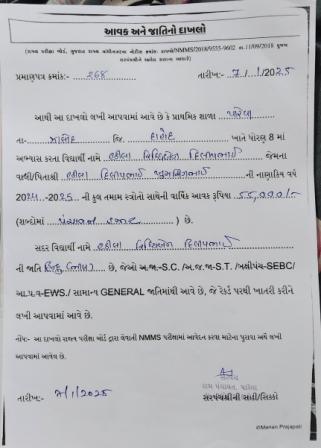 આવક અને જાતિનો દાખલો
(રાજ્ય પરીક્ષા બોર્ડ, ગુજરાત રાજ્ય ગાંધીનગરના નોટીસ ક્રમાંક: રાપબો/NMMS/2018/9535-9602 તા.11/09/2018 મુજબ
સરપંચશ્રીને આવેલ સત્તાના આધારે)
પ્રમાણપત્ર ક્રમાંક:- 268 તારીખ:- 7/1/2025
આથી આ દાખલો લખી આપવામાં આવે છે કે પ્રાથમિક શાળા
તા- જિ. દાહોદ ખાતે ધોરણ 8 માં
અભ્યાસ કરતા વિદ્યાર્થી નામે જેમના
વાલી/પિતાશ્રી ની નાણાકિય વર્ષ
2024-2025 ની કુલ તમામ સ્ત્રોતો સાથેની વાર્ષિક આવક રૂપિયા 55,000/-
(શબ્દોમાં પંચાવન હજાર ) છે.
સદર વિદ્યાર્થી નામે
ની જાતિ છે, જેઓ અ.જા-S.C. /અ.જ.જા-S.T. /બક્ષીપંચ-SEBC/
આ.પ.વ-EWS./ સામાન્ય GENERAL જાતિમાંથી આવે છે, જે રેકર્ડ પરથી ખાતરી કરીને
લખી આપવામાં આવે છે.
નોંધ:- આ દાખલો રાજ્ય પરીક્ષા બોર્ડ દ્વારા લેવાતી NMMS પરીક્ષામાં આવેદન કરવા માટેના પુરાવા અર્થે લખી
આપવામાં આવેલ છે.
સરપંચ
ગ્રામ પંચાયત
તારીખ:- 7/1/2025 સરપંચશ્રીની સહી/સિક્કો
©Manan Prajapati